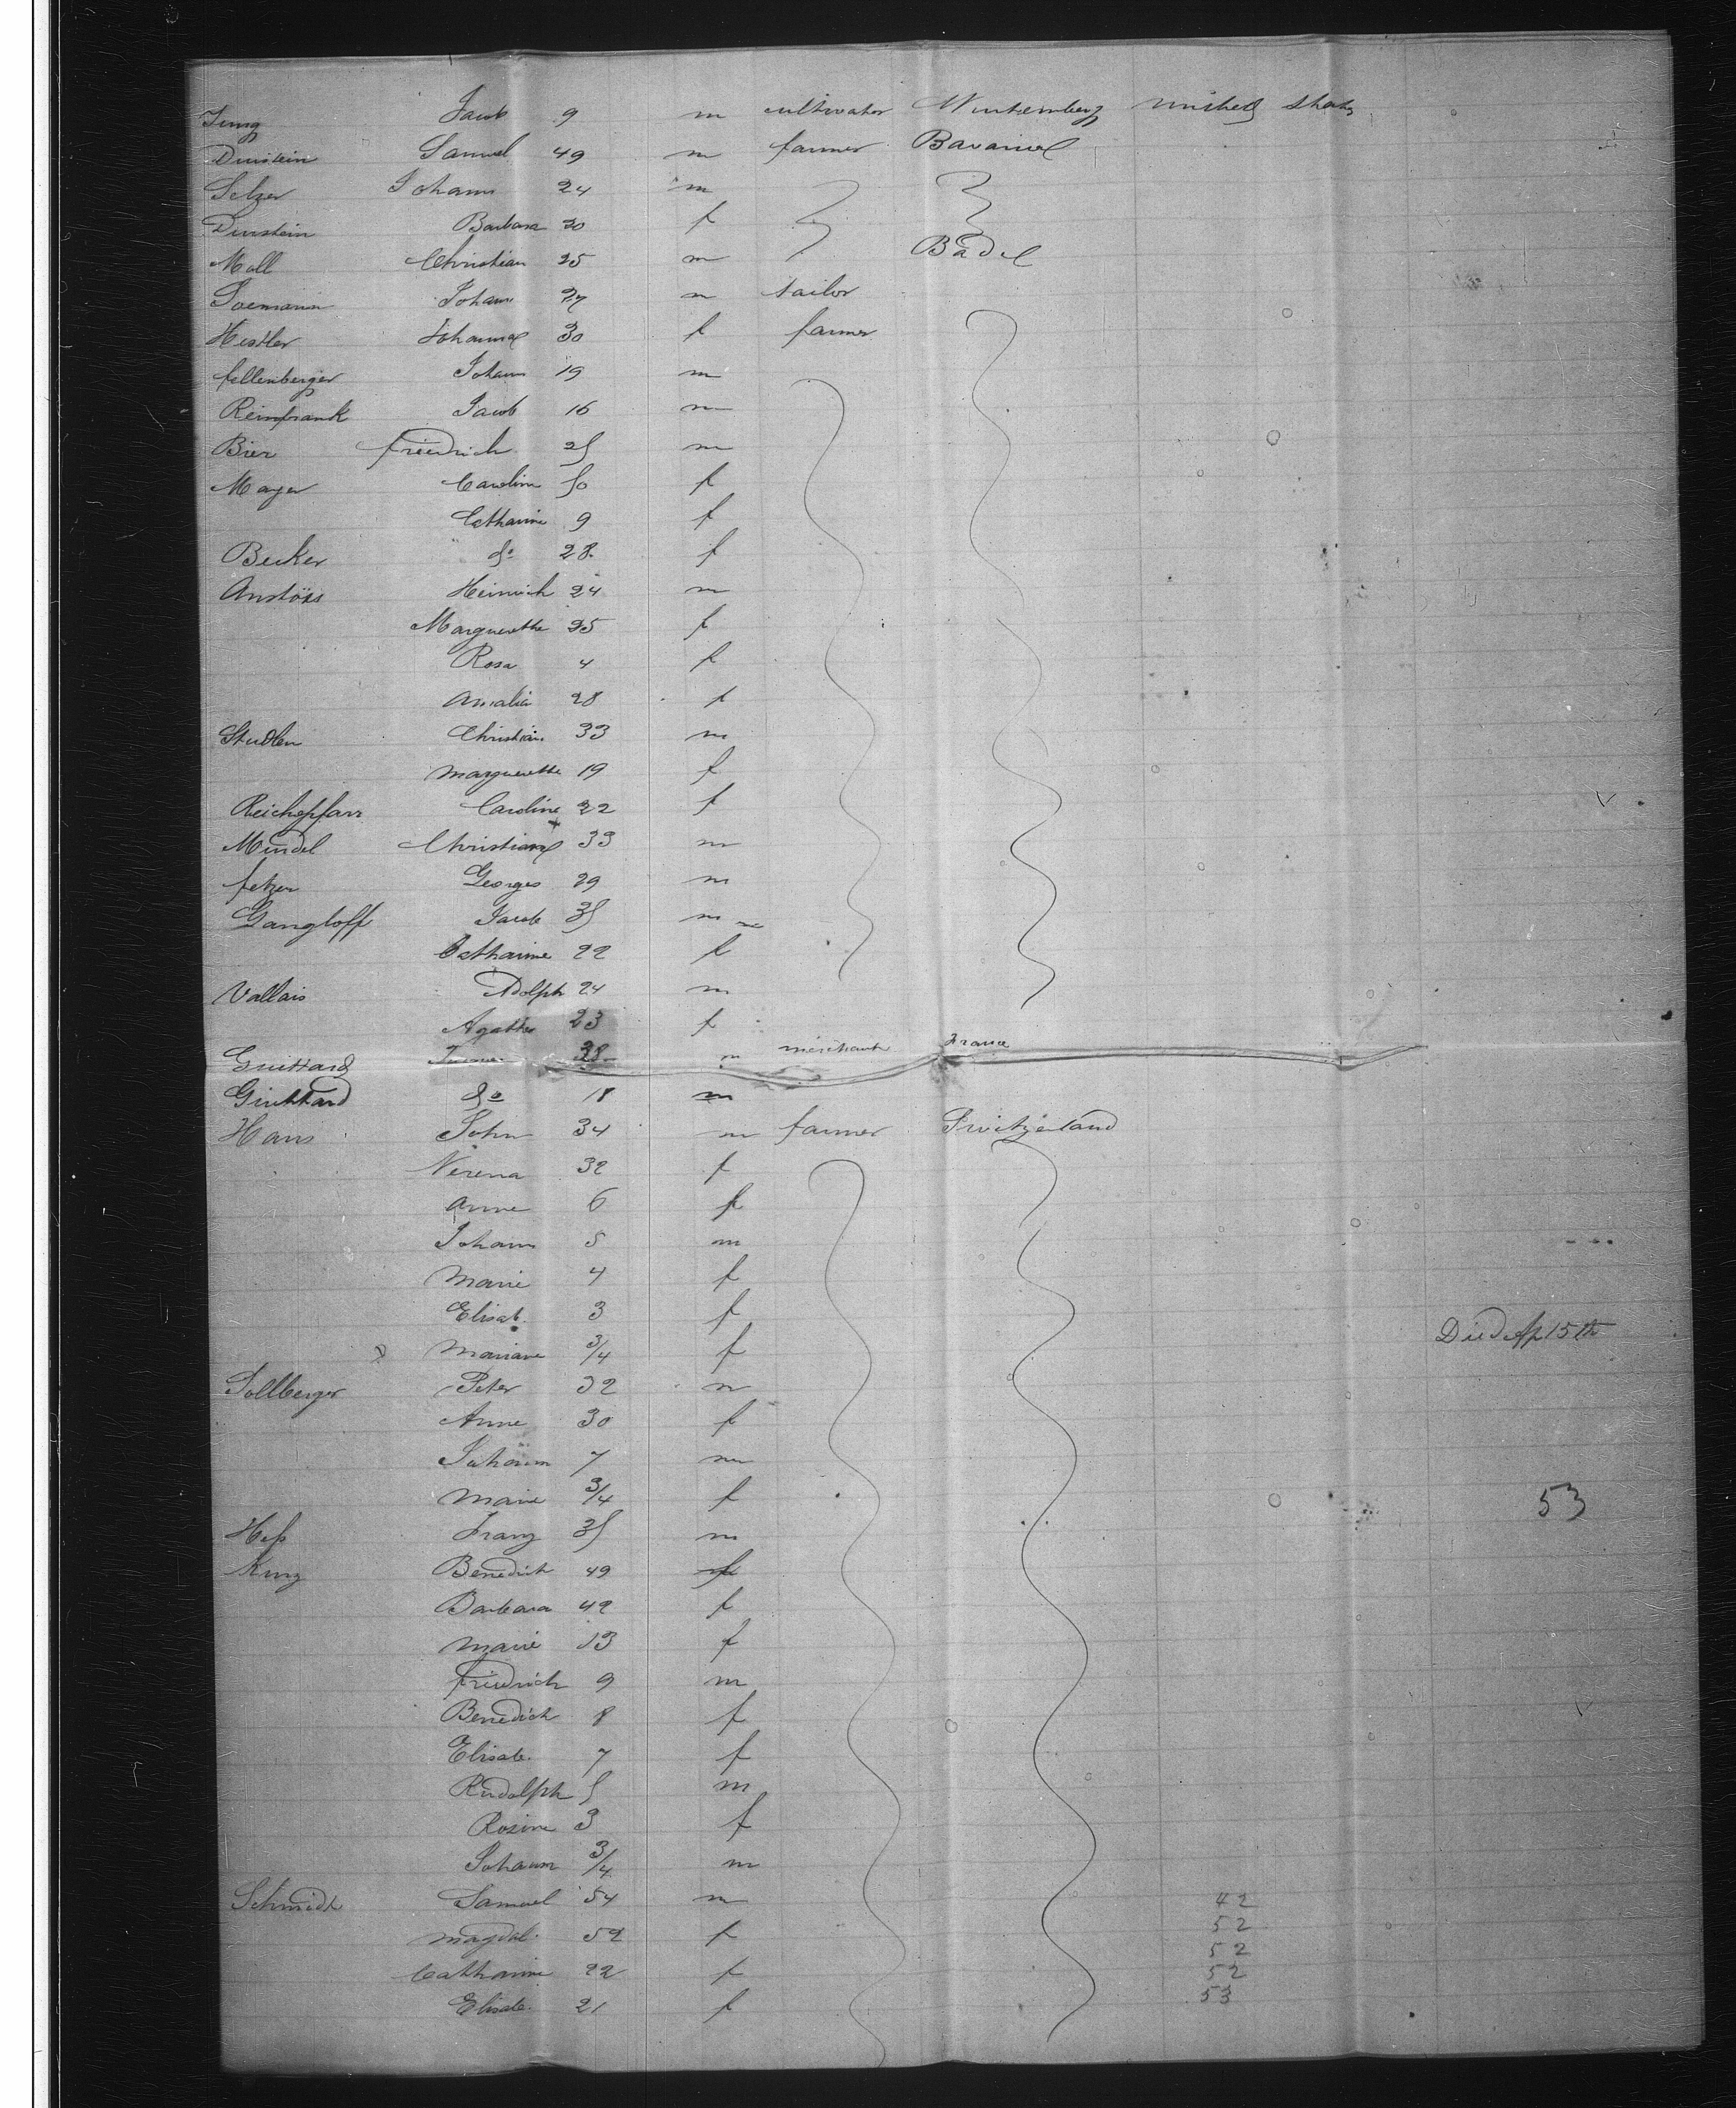 Jung Jacob 9 m cultivator Wurtemberg united states
Dinstein Samuel 49 m farmer Bavaria
Selzer Johann 24 m
Dinstein Barbara 20 f
Moll Christian 25 m Badel
Johann 27 m tailor
Hestler Johanna 30 f farmer
fellenberger Johann 19 m
Reinfrank Jacob 16 m
Bier friedrich 25 m
Mayer Caroline 50 f
Catharine 9 f
Becker do 28 f
Anstöss Heinrich 24 m
Marguerethe 25 f
Rosa 4 f
Amalie 28 f
Studlen Christian 33 m
Marguerethe 19 f
Reichspfarr Caroline 22 f
Mindel Christiana 33 m
fetzer Georges 29 m
Gangloff Jacob 35 m
Catharine 22 f
Vallais Adolph 24 m
Agathe 23 f
Guittard 38 m merchant France
Guittard do 18 m
Hans John 34 m farmer Switzerland
Verena 32 f
Anne 6 f
Johann 5 m
Marie 4 f
Elisab. 3 f
Mariane 3/4 f Died Ap 15th
Sollberger Peter 32 m
Anne 30 f
Johann 7 m
Marie 3/4 f 53
Hess Franz 35 m
Kunz Benedict 49 f
Barbara 42 f
Marie 13 f
friedrich 9 m
Benedich 8 f
Elisab. 7 f
Rudolph 5 m
Rosine 3 f
Johann 3/4 m
Schmidt Samuel 54 m 42
Magdal. 52 f 52
52
Catharine 22 f 52
Elisab. 21 f 53